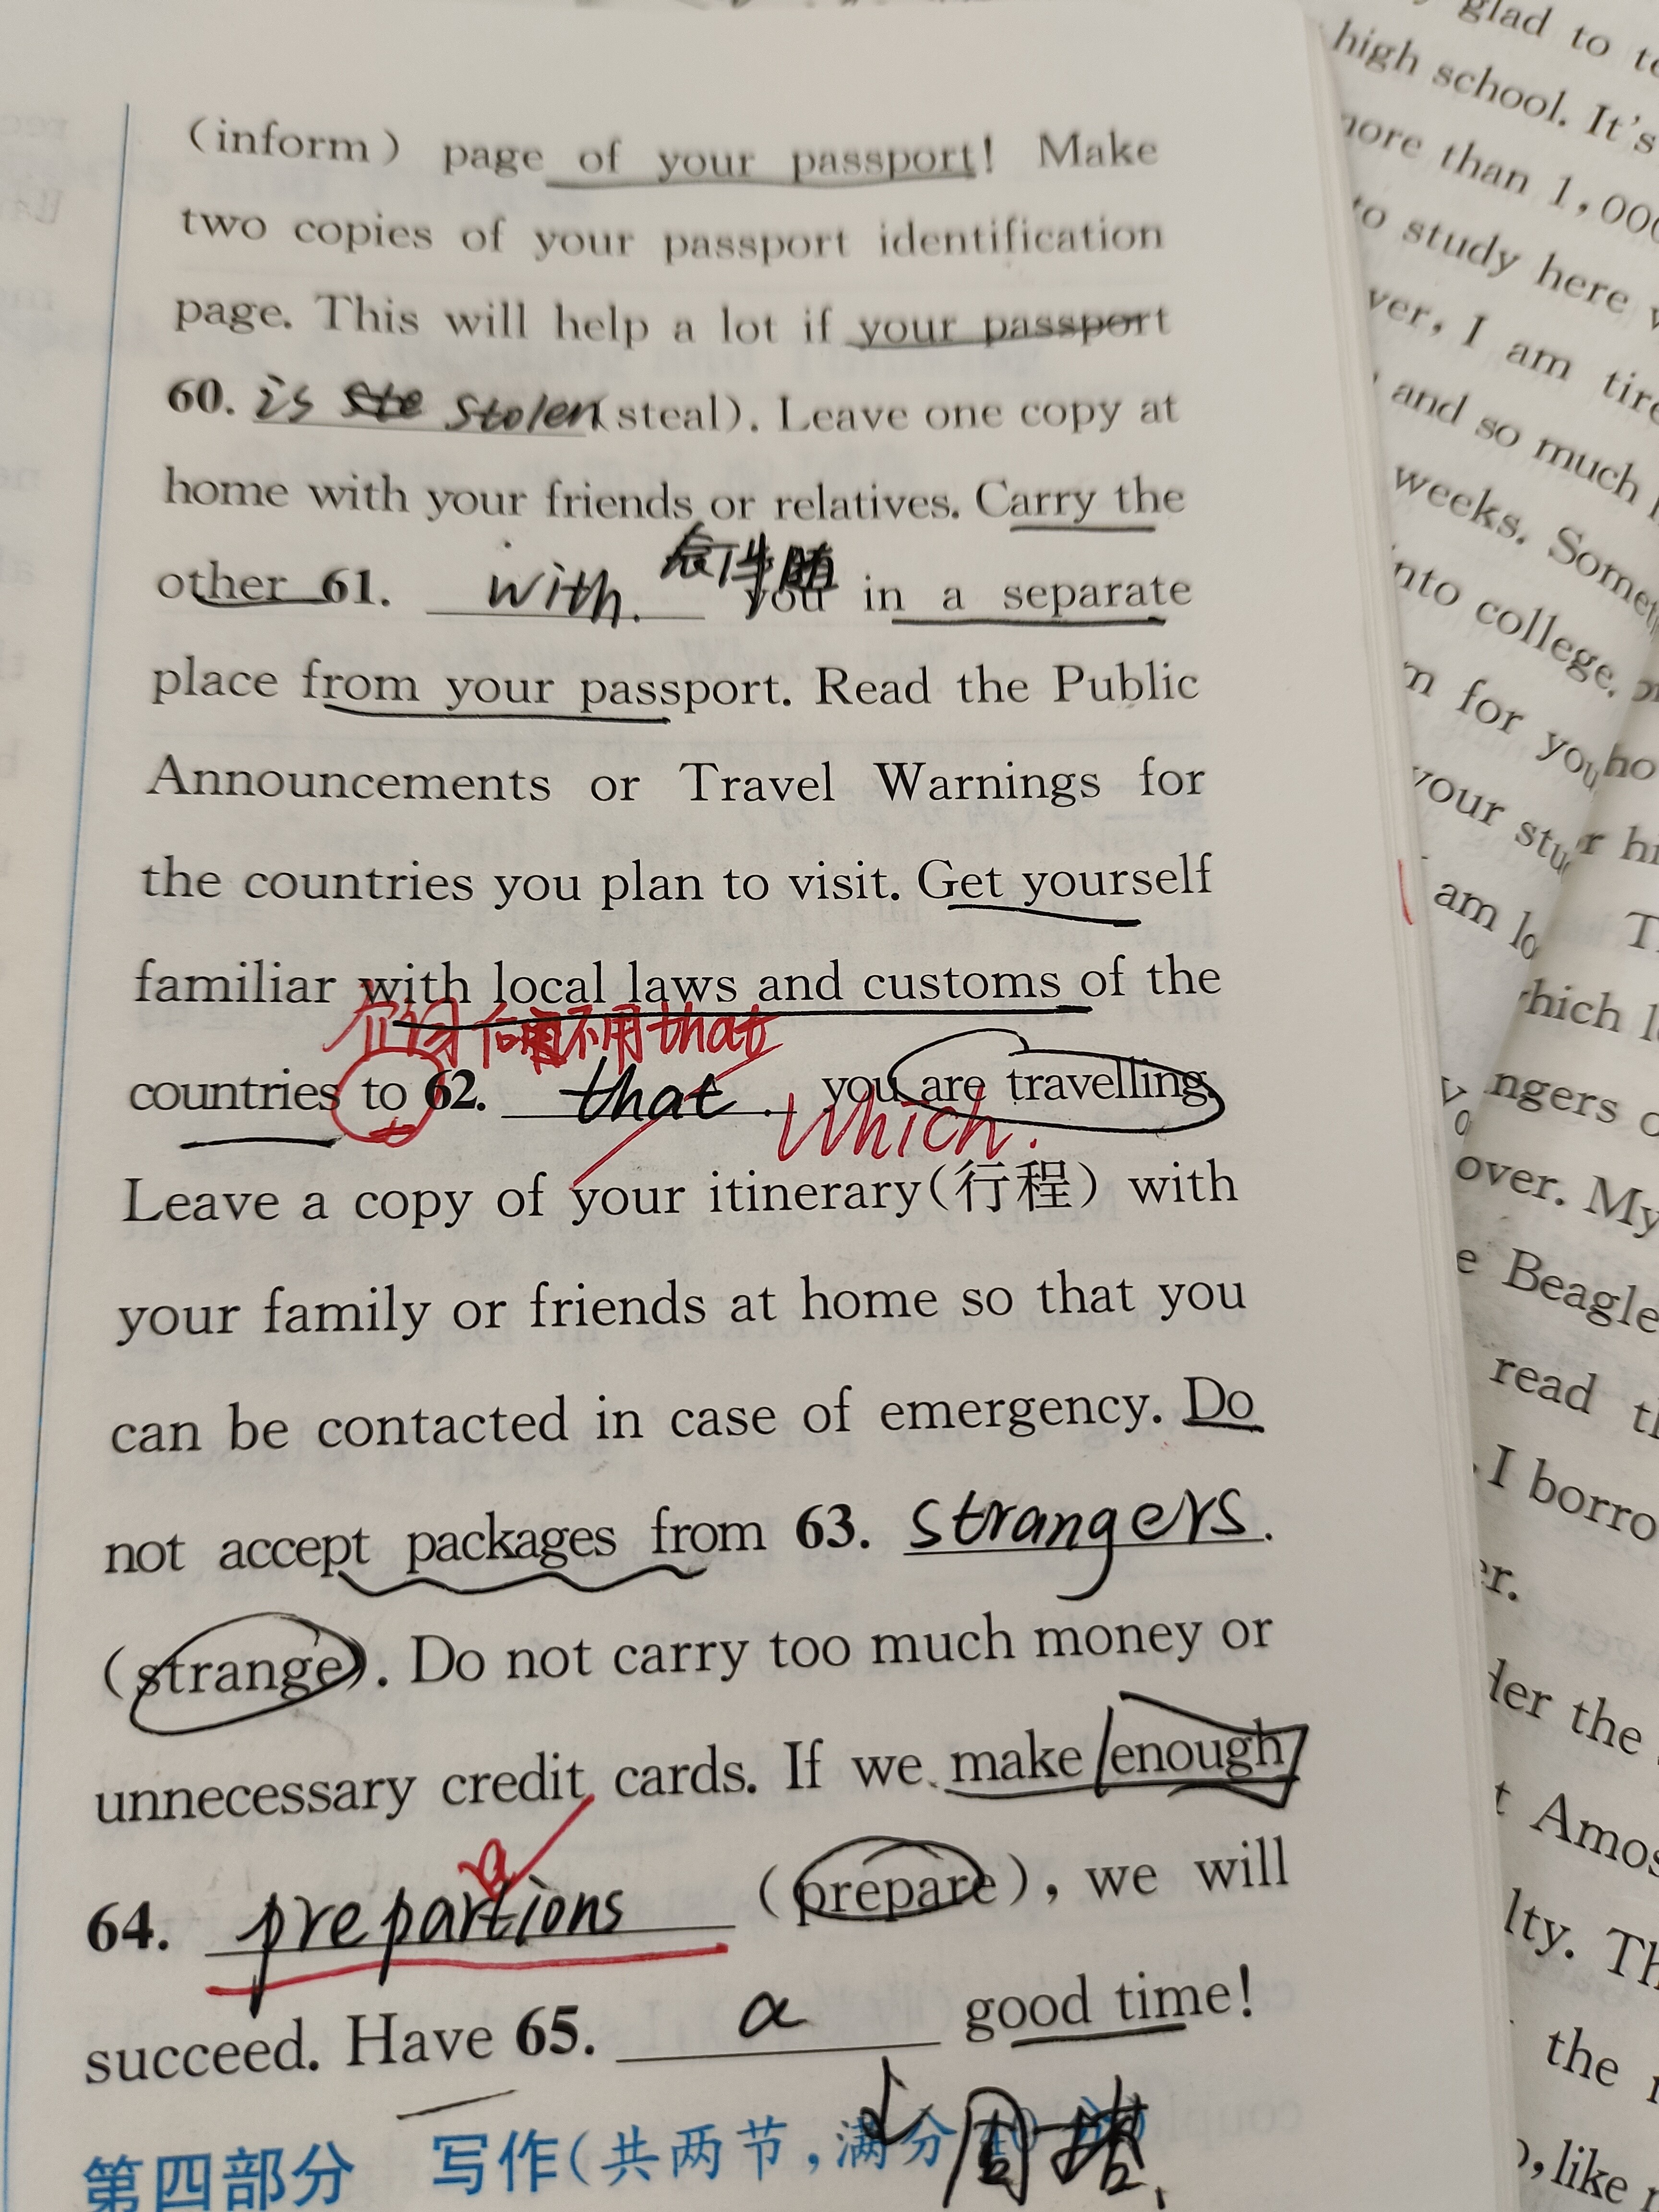 (inform) page of your passport! Make
two copies of your passport identification
page. This will help a lot if your passport
60. is stolen (steal). Leave one copy at
home with your friends or relatives. Carry the
other 61. with. you in a separate
place from your passport. Read the Public
Announcements or Travel Warnings for
the countries you plan to visit. Get yourself
familiar with local laws and customs of the
介词后不用that
countries to 62. that. you are travelling.
Which.
Leave a copy of your itinerary(行程) with
your family or friends at home so that you
can be contacted in case of emergency. Do
not accept packages from 63. strangers.
(strange). Do not carry too much money or
unnecessary credit cards. If we make enough
a
64. prepartions (prepare), we will
succeed. Have 65. a good time!
第四部分 写作(共两节,满分
glad to
high school. It's
more than 1,000
to study here
I am
and so much
weeks. 
into college.
for you
your
am
ho
hi
which
over. My
Beagle
read
I borro
er.
the
Amos
lty. Th
the
like